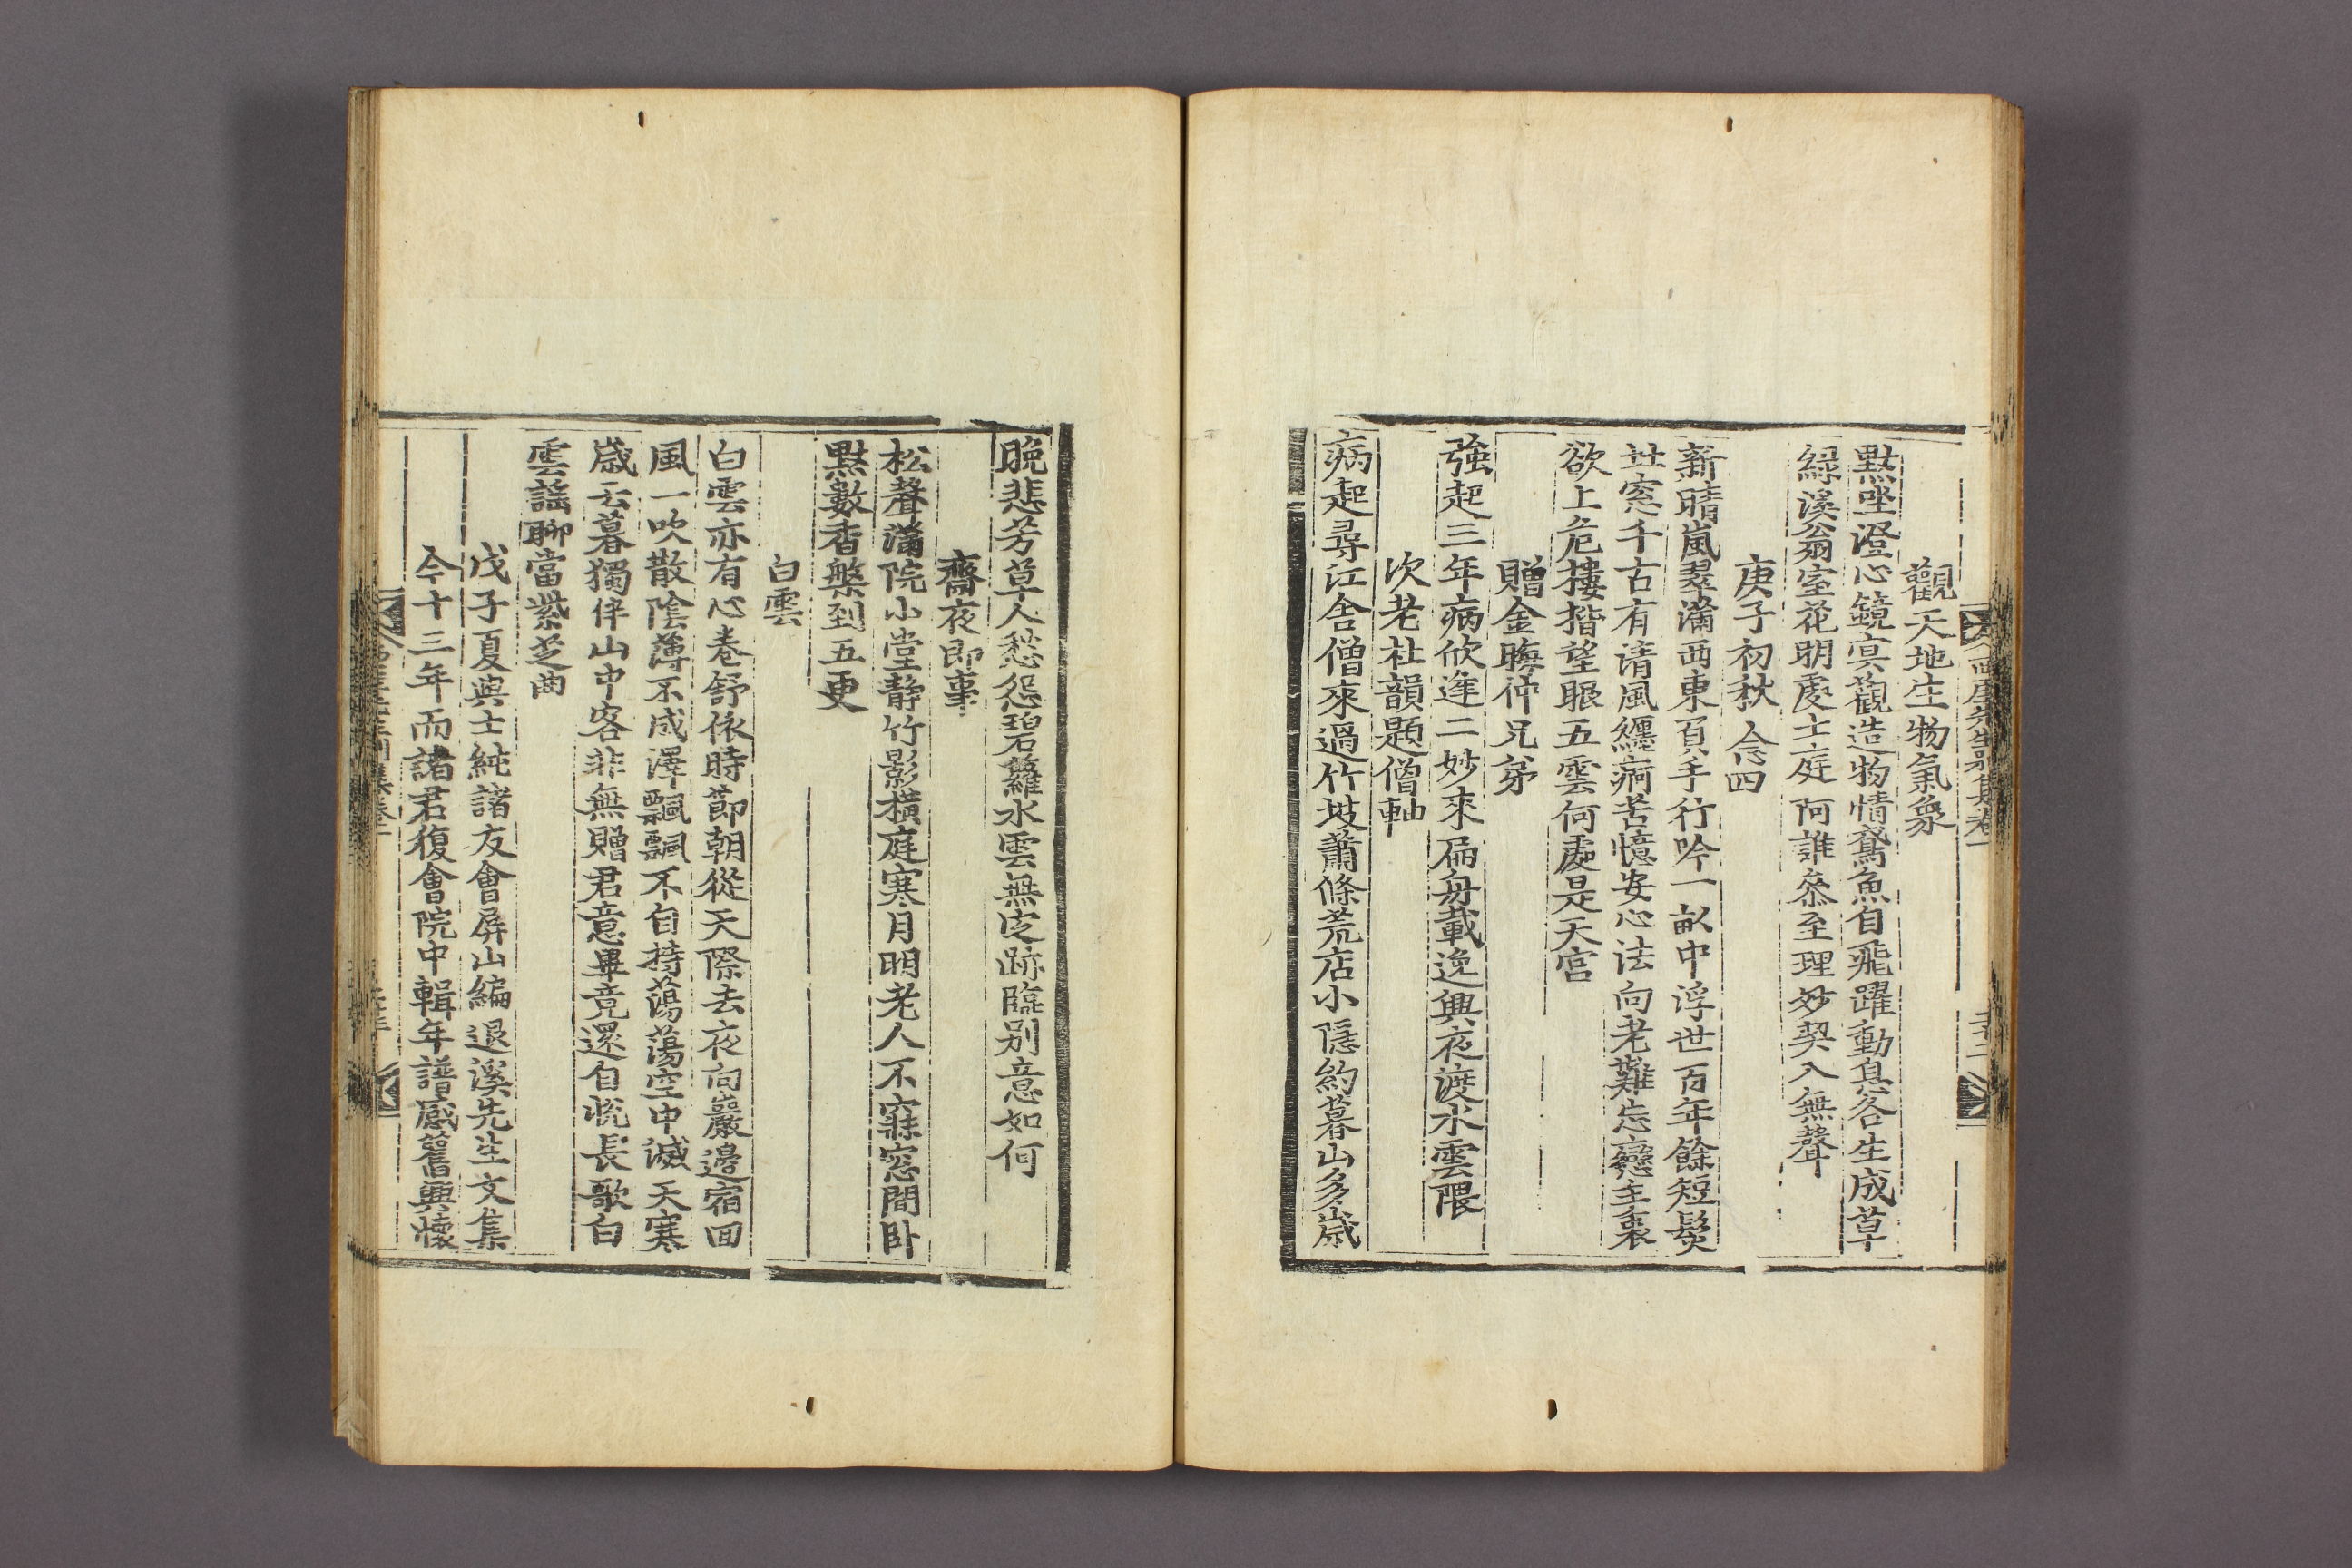 西厓先生別集卷一
觀天地生物氣象
默坐澄心鏡㝠觀造物情鳶魚自飛躍動息各生成草
綠溪翁室花明處士庭阿誰叅至理妙契入無聲
庚子初秋念四
新晴嵐翠滿西東負手行吟一畝中浮世百年餘短髮
北窓千古有清風纏痾苦憶安心法向老難忘戀主衷
欲上危樓揩望眼五雲何處是天宮
贈金聸仲兄弟
強起三年病欣逢二妙來扁舟載逸興夜渡水雲隈
次老杜韻題僧軸
病起尋江舍僧來過竹坡蕭條荒店小隱約暮山多歲
晚悲芳草人愁怨碧蘿水雲無定跡臨別意如何
齋夜卽事
松聲滿院小堂靜竹影橫庭寒月明老人不寐窓間臥
默數香槃到五更
白雲
白雲亦有心卷舒依時節朝從天際去夜向巖邊宿回
風一吹散陰薄不成澤飄飄不自持蕩蕩空中滅天寒
歲云暮獨伴山中客非無贈君意畢竟還自恱長歌白
雲謠聊當紫芝曲
戊子夏與士純諸友會屛山編退溪先生文集
今十三年而諸君復會院中輯年譜感舊興懷